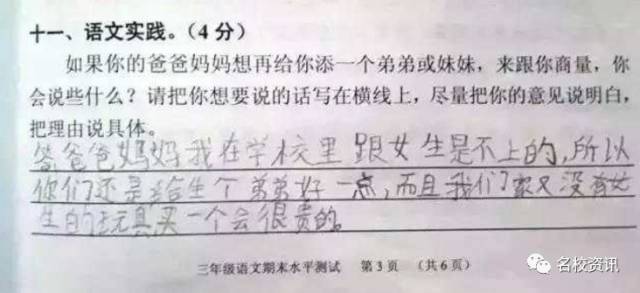 十一、语文实践。（4分）
如果你的爸爸妈妈想再给你添一个弟弟或妹妹，来跟你商量，你
会说些什么？请把你想要说的话写在横线上，尽量把你的意见说明白，
把理由说具体。
答爸爸妈妈我在学校里跟女生是不上的，所以
你们还是给生个弟弟好一点，而且我们家又没有女
生的玩具买一个会很贵的。
三年级语文期末水平测试 第3页 （共6页）
名校资讯